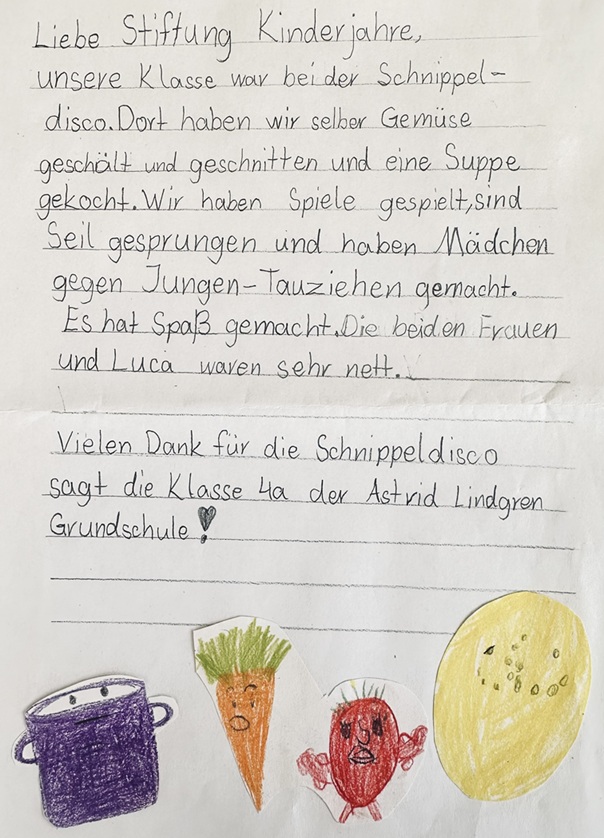 Liebe Stiftung Kinderjahre,
unsere Klasse war bei der Schnippel-
disco. Dort haben wir selber Gemüse
geschält und geschnitten und eine Suppe
gekocht. Wir haben Spiele gespielt, sind
Seil gesprungen und haben Mädchen
gegen Jungen-Tauziehen gemacht.
Es hat Spaß gemacht. Die beiden Frauen
und Luca waren sehr nett.
Vielen Dank für die Schnippeldisco
sagt die Klasse 4a der Astrid Lindgren
Grundschule!